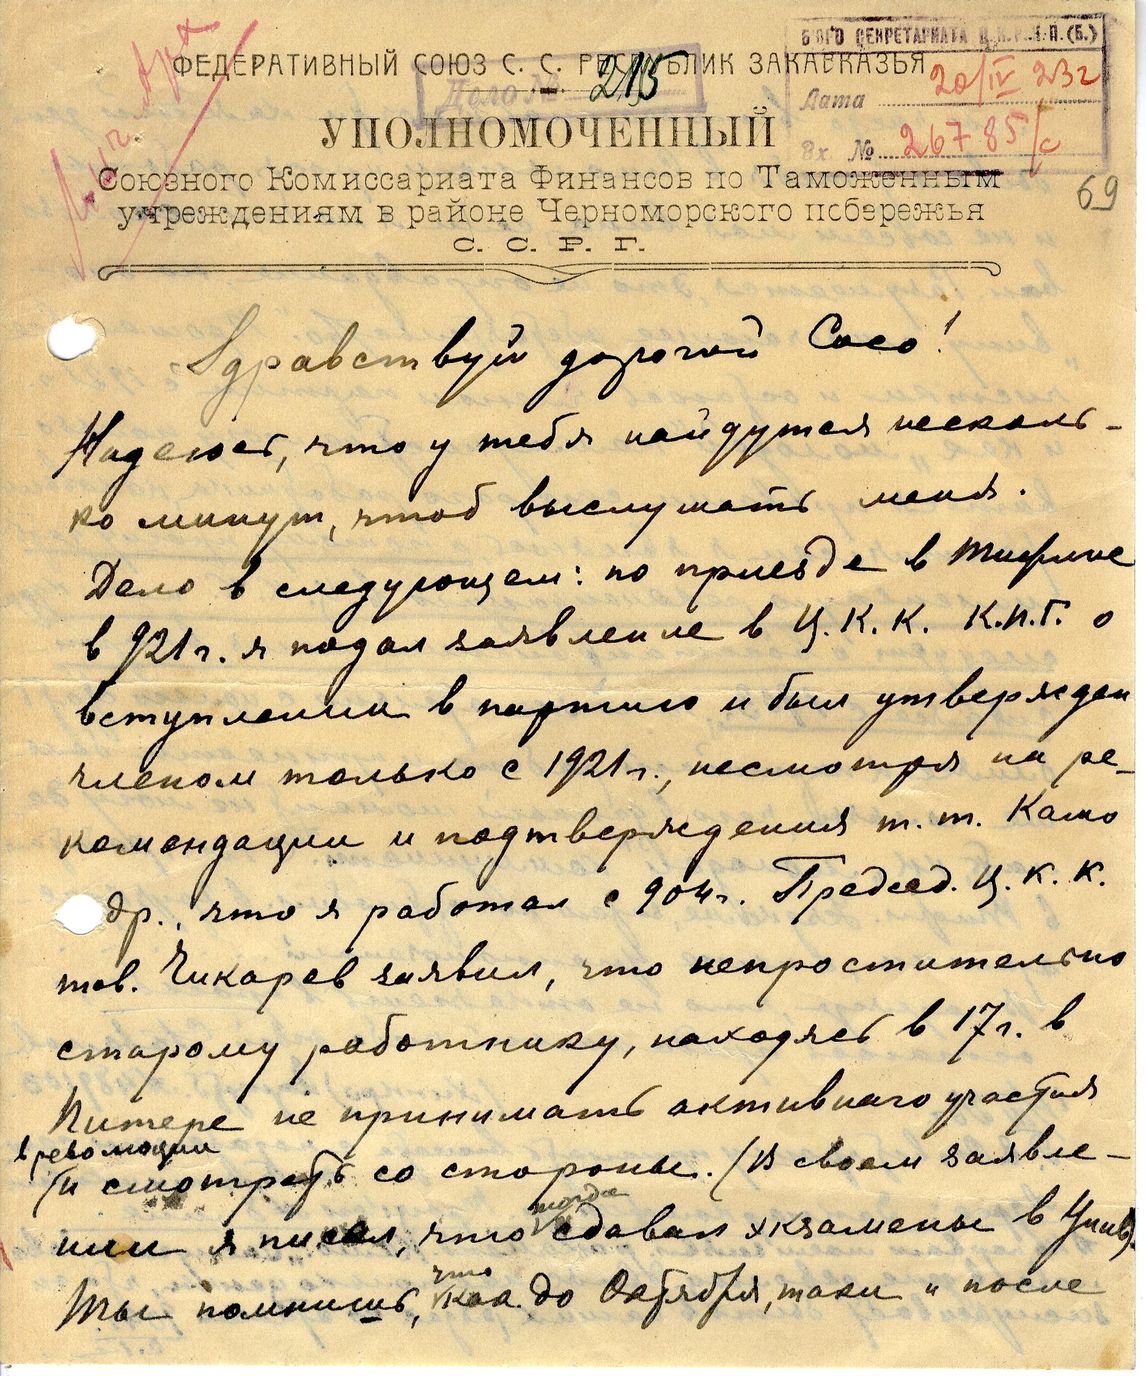 Личн. Арх
БЮРО СЕКРЕТАРИАТА Ц.К.Р.К.П.(Б.)
Дата 20/IV 23г
Вх. № 26785/с
ФЕДЕРАТИВНЫЙ СОЮЗ С. С. РЕСПУБЛИК ЗАКАВКАЗЬЯ
Дело № 215
УПОЛНОМОЧЕННЫЙ
Союзного Комиссариата Финансов по Таможенным
учреждениям в районе Черноморского побережья
С. С. Р. Г.
69
Здравствуй дорогой Сосо!
Надеюсь, что у тебя найдутся несколь-
ко минут, чтоб выслушать меня.
Дело в следующем: по приезде в Тифлис
в 921г. я подал заявление в Ц. К. К. К.П.Г. о
вступлении в партию и был утвержден
членом только с 1921г., несмотря на ре-
комендации и подтверждения т.т. Камо
др., что я работал с 904г. Председ. Ц. К. К.
тов. Чикарев заявил, что непростительно
старому работнику, находясь в 17г. в
Питере не принимать активного участия
в революции
(и смотреть со стороны. (В своем заявле-
нии я писал, что тогда сдавал экзамены в Унив.)
Ты помнишь, что как до Октября, так и после